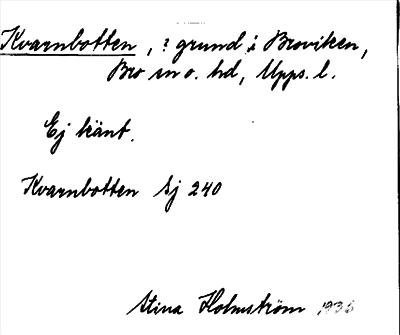 Kvarnbotten, ? grund i Broviken,
Bro sn o. hd, Upps. l.
Ej känt.
Kvarnbotten Sj 240
Stina Holmström 1935